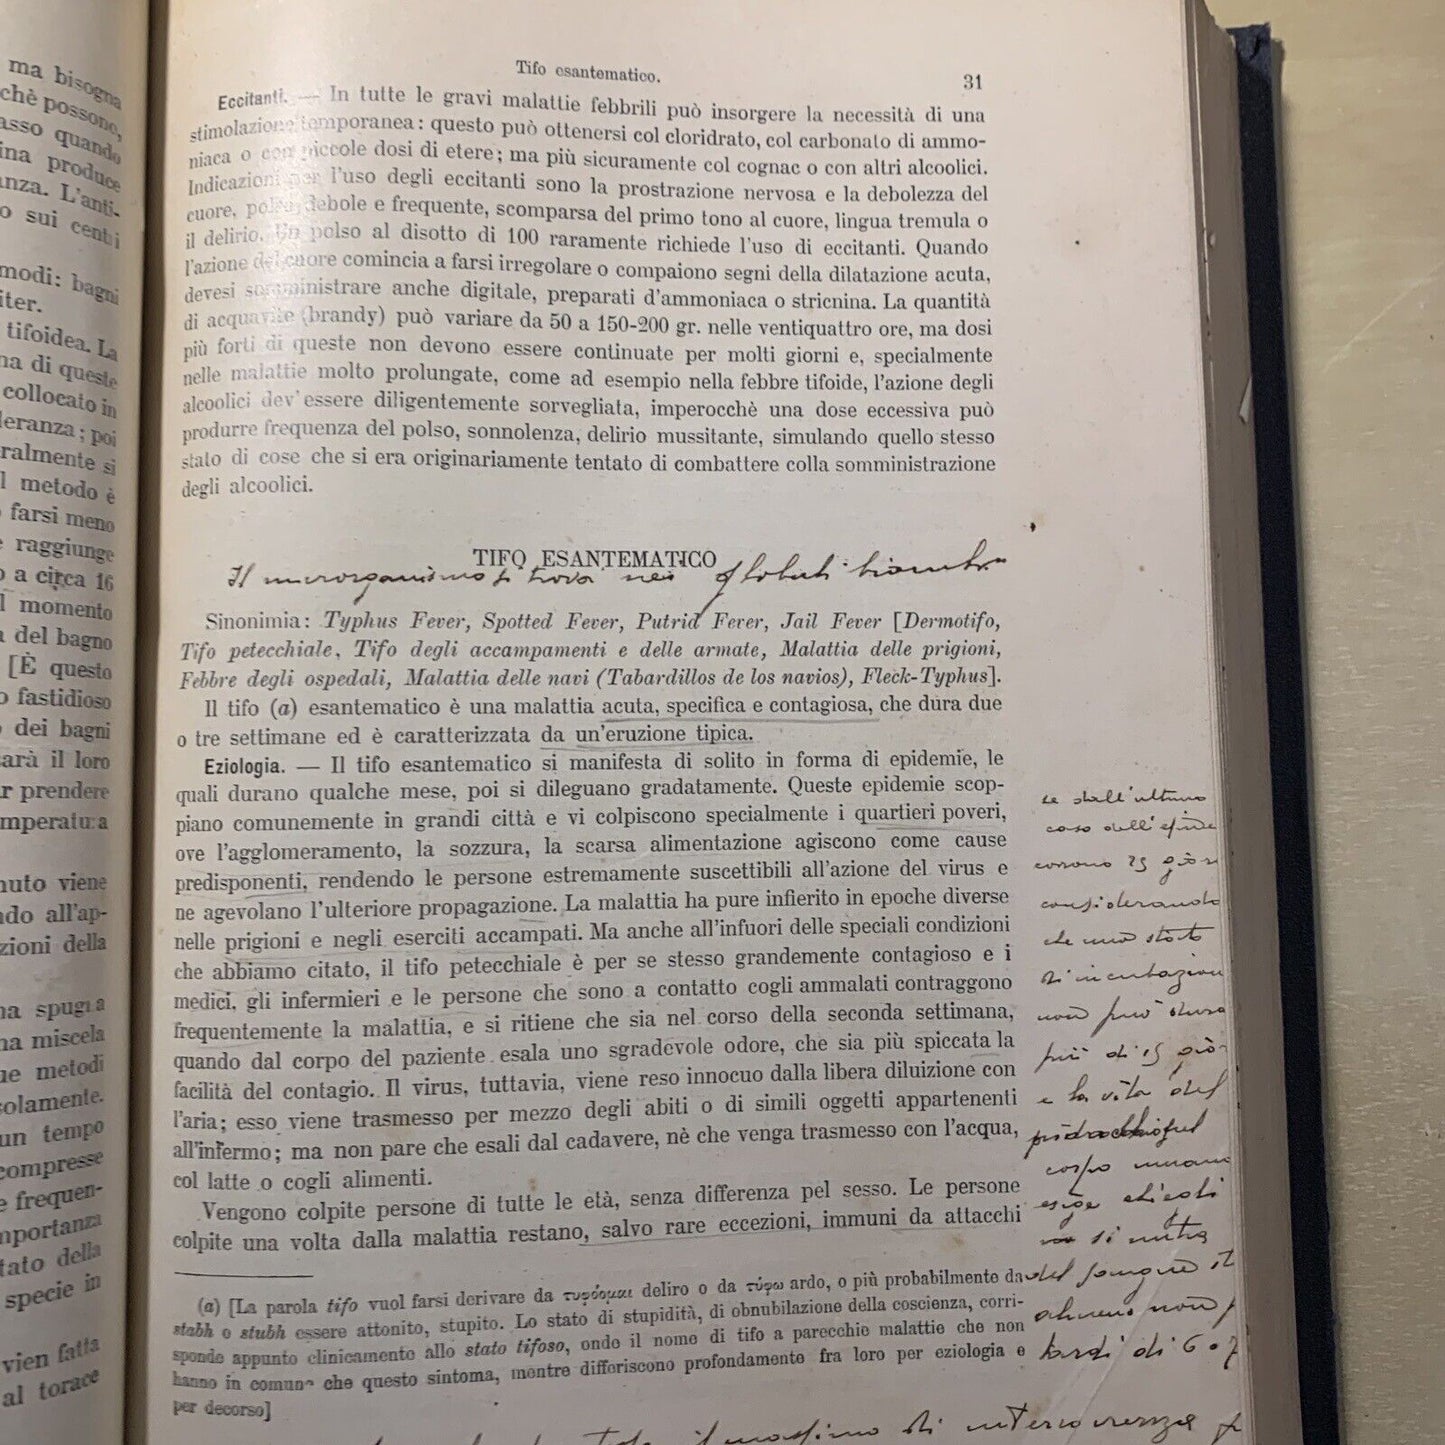 ma bisogna
chè possono,
asso quando
ina produce
anza. L'anti-
o sui centri
modi: bagni
iter.
tifoidea. La
na di queste
collocato in
leranza; poi
ralmente si
l metodo è
farsi meno
e raggiunge
o a circa 16
l momento
a del bagno
[È questo
o fastidioso
dei bagni
arà il loro
r prendere
mperatura
nuto viene
ndo all'ap-
zioni della
na spugna
na miscela
ne metodi
solamente.
un tempo
compresse
e frequen-
mportanza
tato della
specie in
vien fatta
al torace
Tifo esantematico. 31
Eccitanti. — In tutte le gravi malattie febbrili può insorgere la necessità di una
stimolazione temporanea: questo può ottenersi col cloridrato, col carbonato di ammo-
niaca o con piccole dosi di etere; ma più sicuramente col cognac o con altri alcoolici.
Indicazioni per l'uso degli eccitanti sono la prostrazione nervosa e la debolezza del
cuore, polso debole e frequente, scomparsa del primo tono al cuore, lingua tremula o
il delirio. Un polso al disotto di 100 raramente richiede l'uso di eccitanti. Quando
l'azione del cuore comincia a farsi irregolare o compaiono segni della dilatazione acuta,
devesi somministrare anche digitale, preparati d'ammoniaca o stricnina. La quantità
di acquavite (brandy) può variare da 50 a 150-200 gr. nelle ventiquattro ore, ma dosi
più forti di queste non devono essere continuate per molti giorni e, specialmente
nelle malattie molto prolungate, come ad esempio nella febbre tifoide, l'azione degli
alcoolici dev'essere diligentemente sorvegliata, imperocchè una dose eccessiva può
produrre frequenza del polso, sonnolenza, delirio mussitante, simulando quello stesso
stato di cose che si era originariamente tentato di combattere colla somministrazione
degli alcoolici.
TIFO ESANTEMATICO
Il microrganismo si trova nei globuli
Sinonimia: Typhus Fever, Spotted Fever, Putrid Fever, Jail Fever [Dermotifo,
Tifo petecchiale, Tifo degli accampamenti e delle armate, Malattia delle prigioni,
Febbre degli ospedali, Malattia delle navi (Tabardillos de los navios), Fleck-Typhus].
Il tifo (a) esantematico è una malattia acuta, specifica e contagiosa, che dura due
o tre settimane ed è caratterizzata da un'eruzione tipica.
Eziologia. — Il tifo esantematico si manifesta di solito in forma di epidemie, le
quali durano qualche mese, poi si dileguano gradatamente. Queste epidemie scop-
piano comunemente in grandi città e vi colpiscono specialmente i quartieri poveri,
ove l'agglomeramento, la sozzura, la scarsa alimentazione agiscono come cause
predisponenti, rendendo le persone estremamente suscettibili all'azione del virus e
ne agevolano l'ulteriore propagazione. La malattia ha pure infierito in epoche diverse
nelle prigioni e negli eserciti accampati. Ma anche all'infuori delle speciali condizioni
che abbiamo citato, il tifo petecchiale è per se stesso grandemente contagioso e i
medici, gli infermieri e le persone che sono a contatto cogli ammalati contraggono
frequentemente la malattia, e si ritiene che sia nel corso della seconda settimana,
quando dal corpo del paziente esala uno sgradevole odore, che sia più spiccata la
facilità del contagio. Il virus, tuttavia, viene reso innocuo dalla libera diluizione con
l'aria; esso viene trasmesso per mezzo degli abiti o di simili oggetti appartenenti
all'infermo; ma non pare che esali dal cadavere, nè che venga trasmesso con l'acqua,
col latte o cogli alimenti.
Vengono colpite persone di tutte le età, senza differenza pel sesso. Le persone
colpite una volta dalla malattia restano, salvo rare eccezioni, immuni da attacchi
(a) [La parola tifo vuol farsi derivare da τυφόομαι deliro o da τύφω ardo, o più probabilmente da
stabh o stubh essere attonito, stupito. Lo stato di stupidità, di obnubilazione della coscienza, corri-
sponde appunto clinicamente allo stato tifoso, onde il nome di tifo a parecchie malattie che non
hanno in comune che questo sintoma, mentre differiscono profondamente fra loro per eziologia e
per decorso]
se dall'ultimo
caso dell'epide
corrono 25 gior
considerando
che uno stato
di incubazion
non può dura
più di 15 gior
e la vita del
pidocchio sul
corpo umano
esige che
si nutra
del sangue
almeno non
tardi di 6 o 7
il massimo di